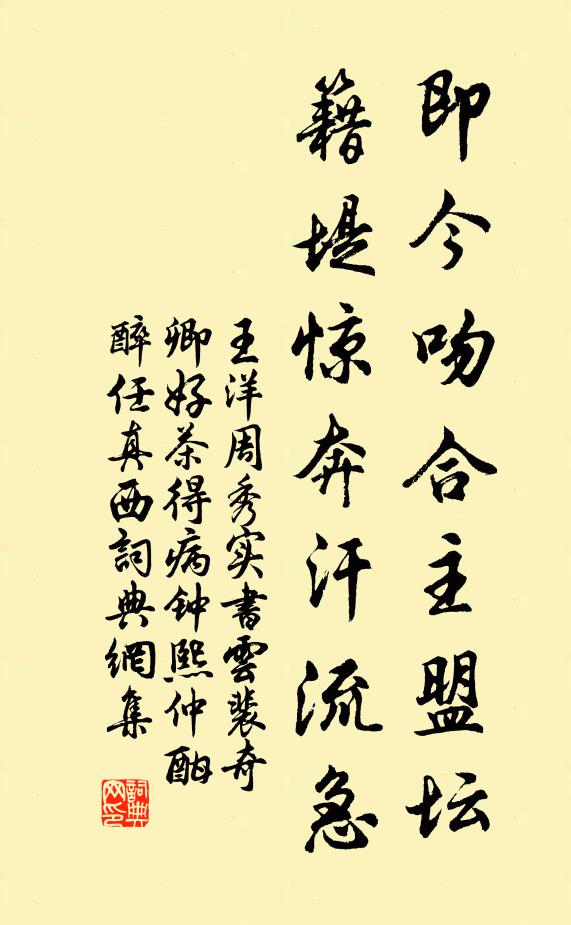 即今吻合主盟坛
籍堤惊奔汗流急
王洋周秀实書雲裴奇
卿好茶得病钟熙仲酣
醉任真西詞典網集
詞典
网印